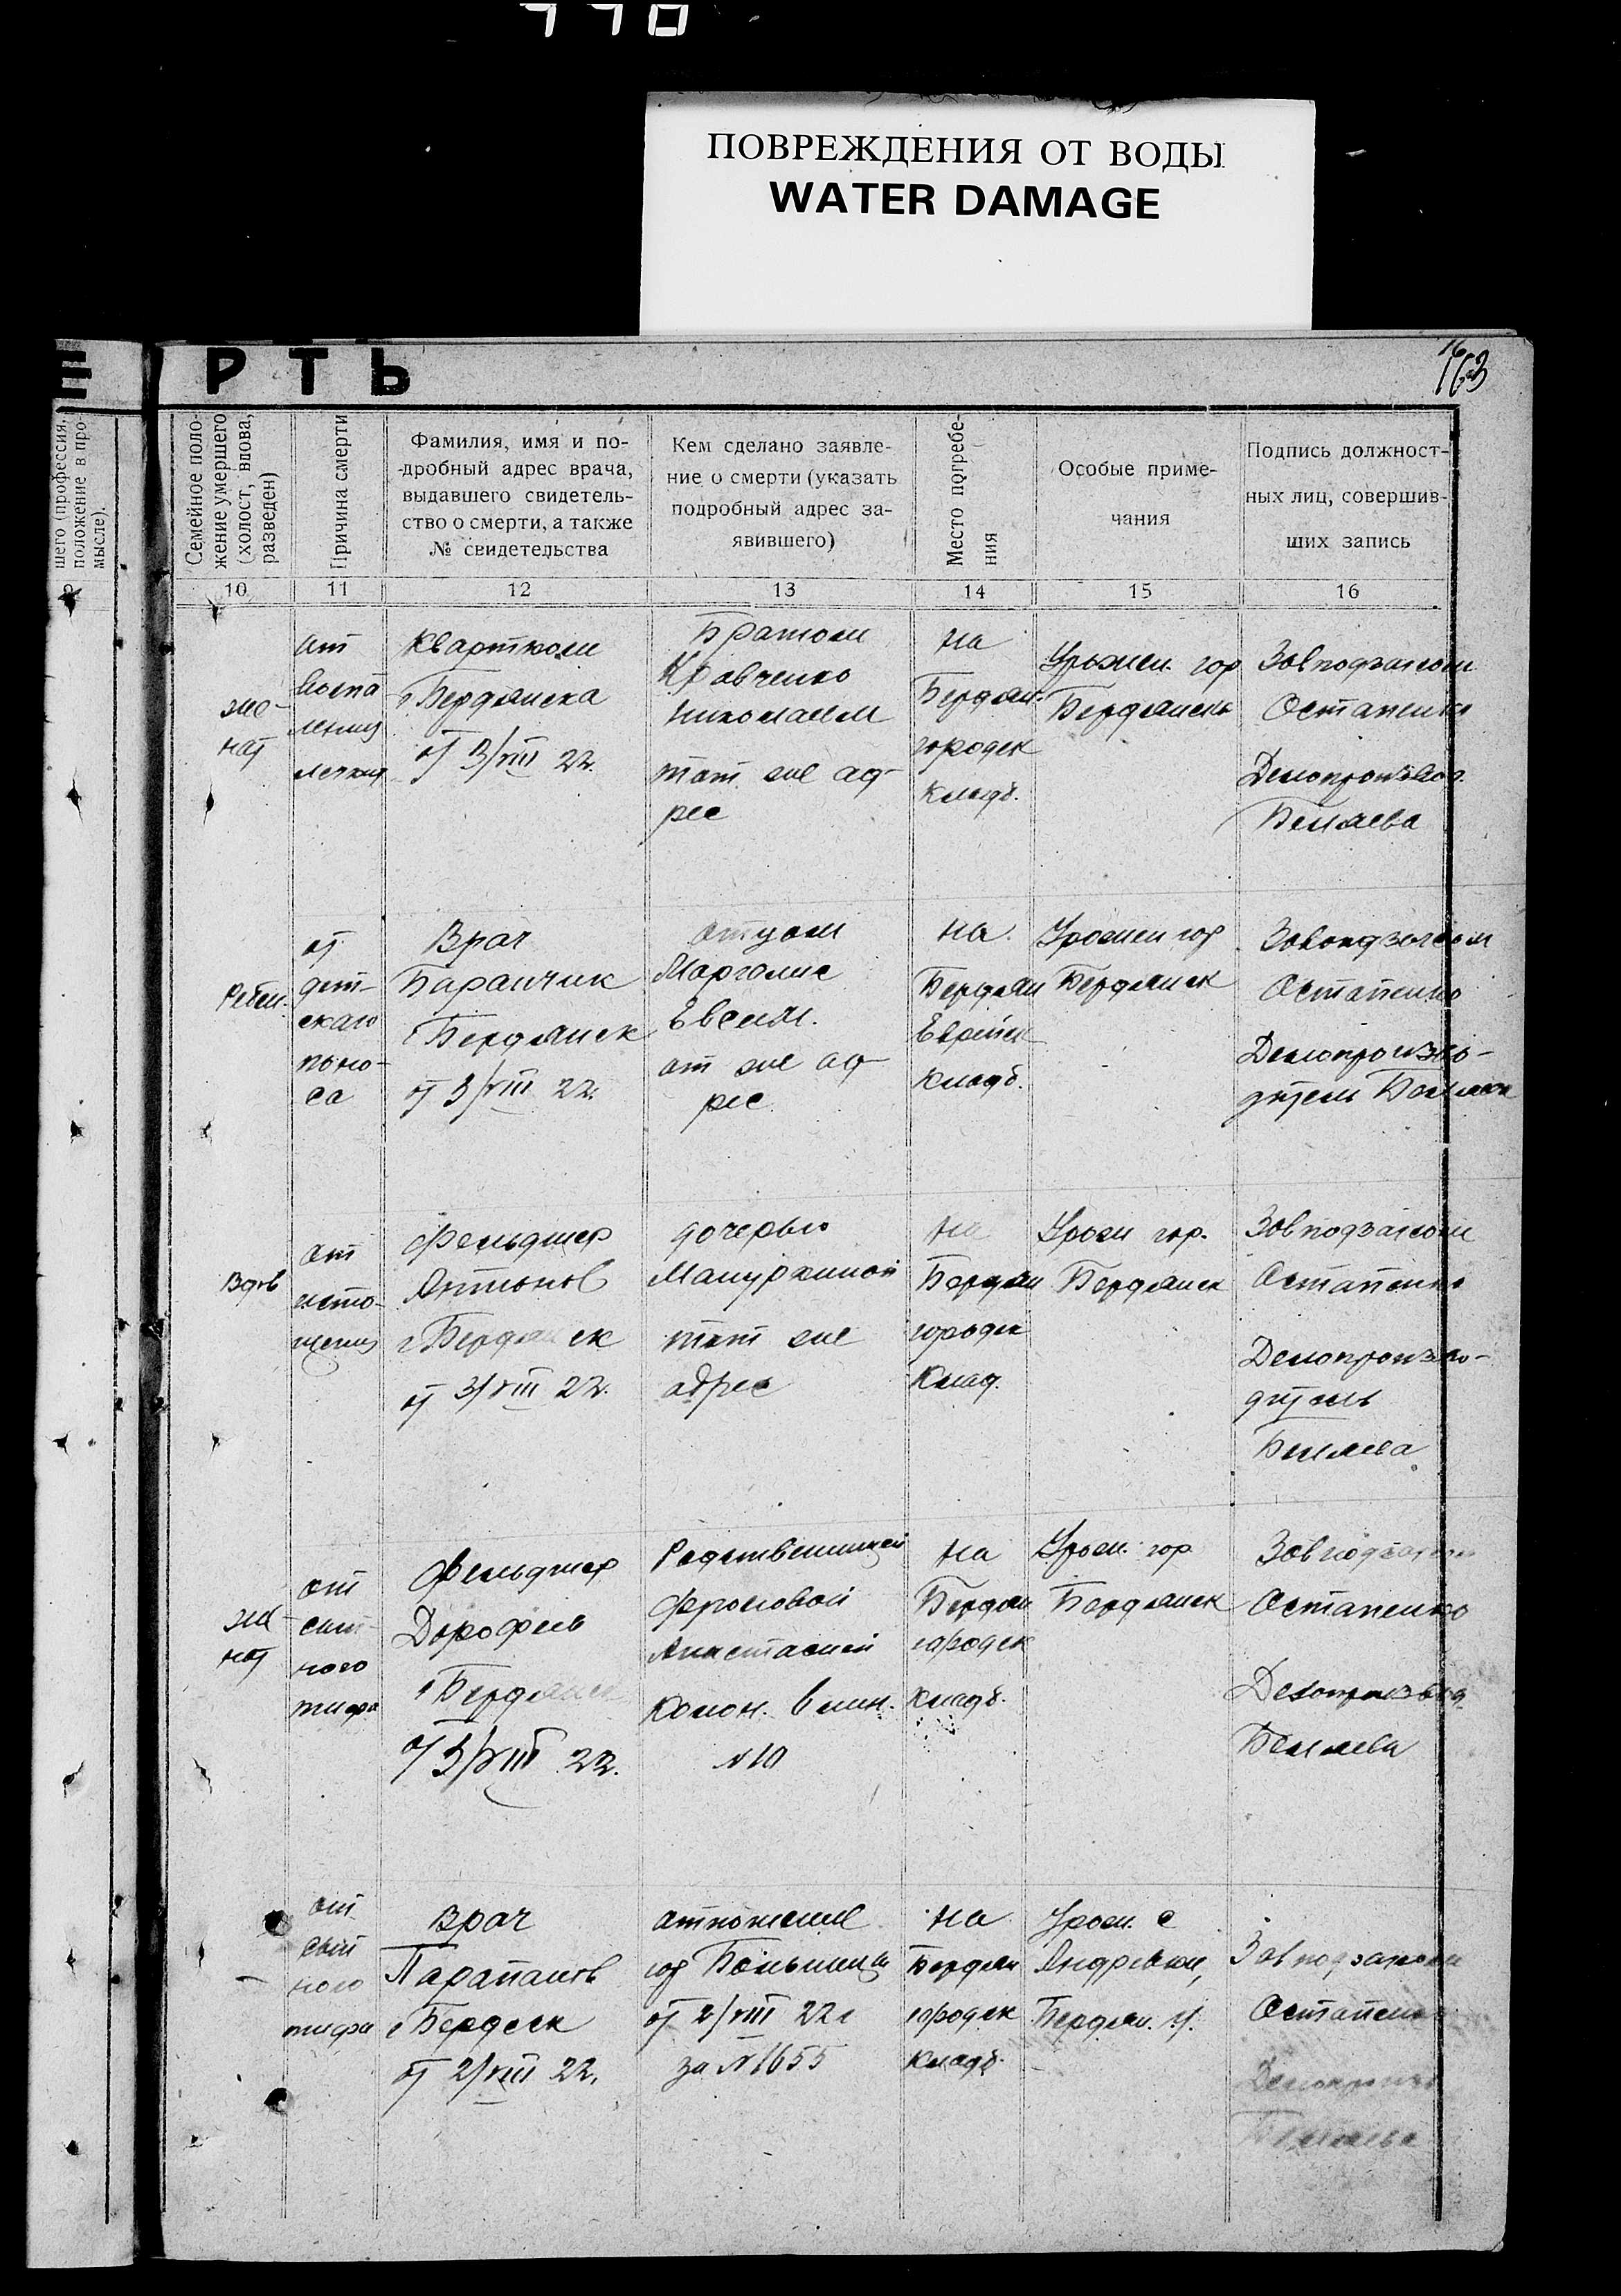 ПОВРЕЖДЕНИЯ ОТ ВОДЫ
WATER DAMAGE
Е РТЬ
163
шего (профессия,
положение в про-
мысле).
Семейное поло-
жение умершего
(холост, вдова,
разведен)
Причина смерти
Фамилия, имя и по-
-дробный адрес врача,
выдавшего свидетель-
ство о смерти, а также
№ свидетельства
Кем сделано заявле-
ние о смерти (указать
подробный адрес за-
явившего)
Место погребе-
ния
Особые приме-
чания
Подпись должност-
ных лиц, совершив-
ших запись
10 11 12 13 14 15 16
же-
нат
от
воспа
ления
легких
Квартком
г Бердянска
от 3/VIII 22.
Братом
Кравченко
Николаем
тот же ад-
рес
на
Бердян.
городск
кладб.
Урожен. гор
Бердянска
Завподзагсом
Остапенко
Делопроизвод.
Беляева
Ребен.
от
дет-
скаго
поно-
са
Врач
Баранчик
г Бердянск
от 3/VIII 22.
отцом
Марголис
Евсей.
от же ад-
рес
на
Бердян
Еврейск
кладб.
Урожен гор
Бердянск
Завподзагсом
Остапенко
Делопроизво-
дитель Беляева
Вдов
от
исто-
щения
Фельдшер
Антонов
г Бердянск
от 3/VIII 22.
дочерью
тот же
адрес
на
Бердян
городск
Клад.
Урож гор.
Бердянск
Завподзагсом
Остапенко
Делопроизво-
дитель
Беляева
же-
нат
от
сып-
ного
тифа
Фельдшер
Дорофеев
г Бердянск
от 3/VIII 22.
Родственницей
Фроловой
Анастасией
Колон. 6 лин.
N 10
на
Бердян
городск
кладб.
Урож. гор
Бердянск
Завподзагсом
Остапенко
Делопроизвод.
Беляева
-
от
сып
ного
тифа
Врач
г Бердск
от 2/VIII 22.
отношение
гор Больницы
от 2/VIII 22 г
за N 1655
на
Бердян
городск
кладб.
Урож. с
Андреевки,
Бердян. у.
Завподзагсом
Остапенко
Делопроизв
Беляева